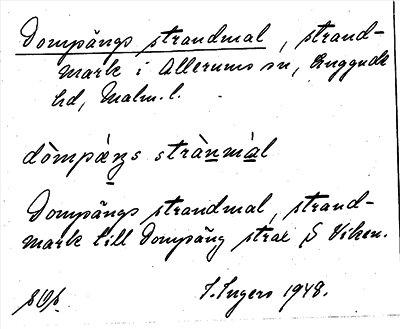 Dompängs strandmal, strand-
mark i Allerums sn, Luggude
hd, Malm. l.
dòmpæŋs strànmàl
Dompängs strandmal, strand-
mark till Dompäng strax S Viken.
I. Ingers 1948.